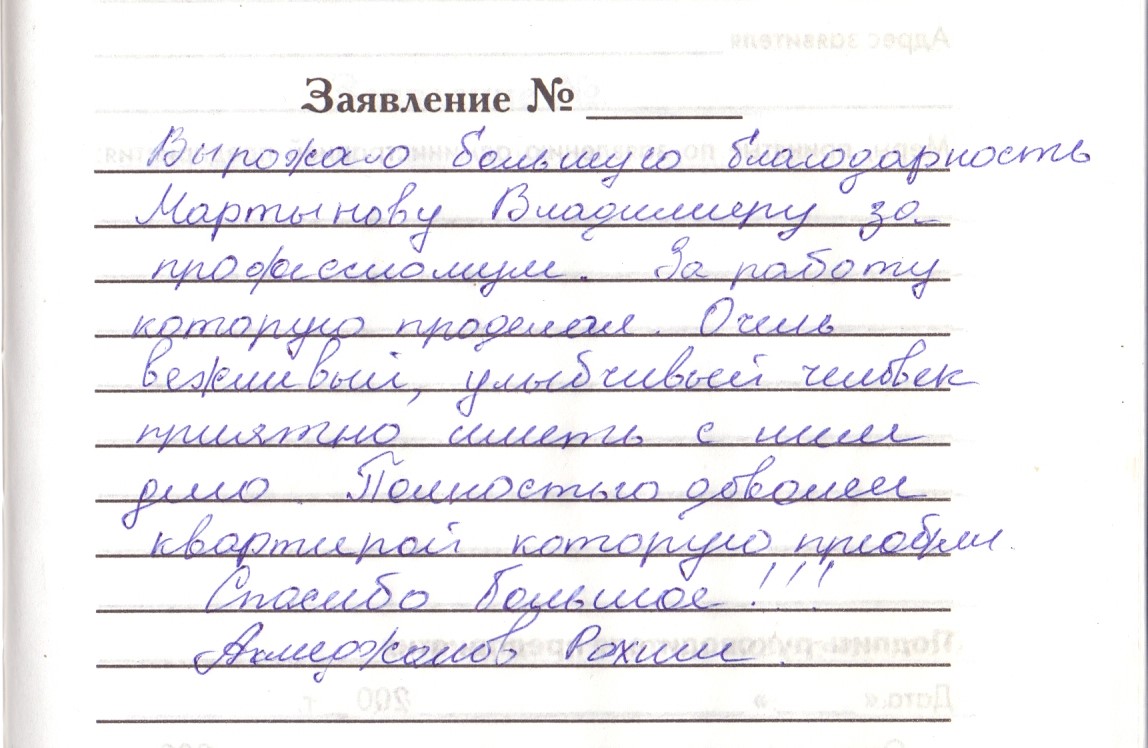 Заявление № ______
Вырожаю большую благодарность
Мартынову Владимиру за
професионализм. За работу
которую проделал. Очень
вежливый, улыбчивый человек
приятно иметь с ним
дело. Полностью доволен
квартирой которую приобрели.
Спасибо большое!!!
Ахмеджанов Рахим.